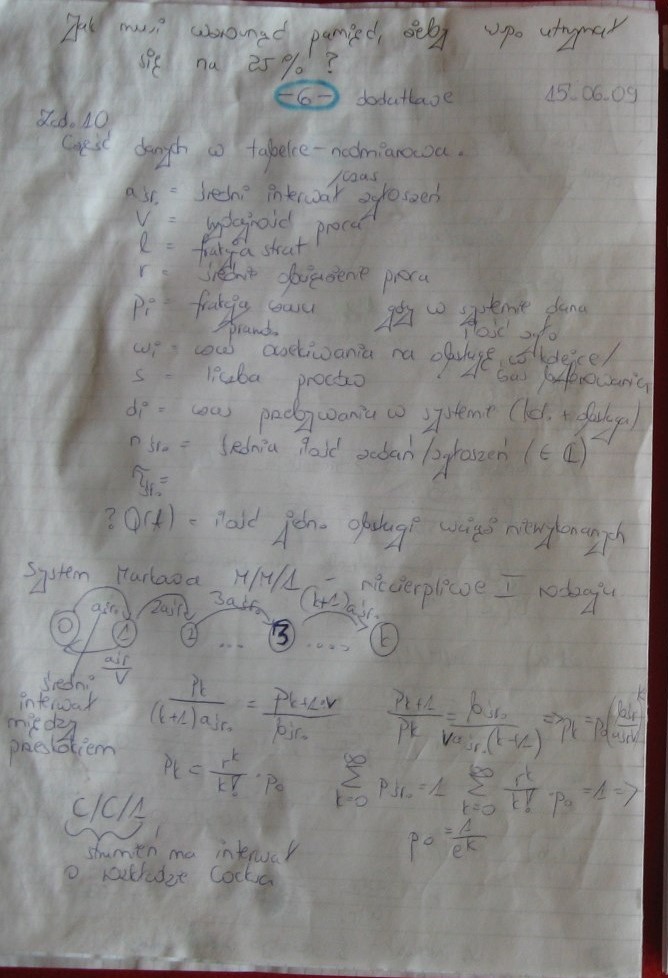 Jak musi wzrosnąć pamięć, żeby wpo utrzymał
się na 25% ?
-6- dodatkowe 15-06-09
Zad. 10
Część danych w tabelce - nadmiarowa.
czas
aśr. = średni interwał zgłoszeń
V = wydajność proca
l = frakcja strat
r = średnie obciążenie proca
pi = frakcja czasu gdy w systemie dana
prawdo. ilość zgło
wi = czas oczekiwania na obsługę, w kolejce /
s = liczba proców czas buforowania
di = czas przebywania w systemie (kol. + obsługa)
nśr. = średnia ilość zadań/zgłoszeń (∈ L)
τśr. =
? Q(t) = ilość jedn. obsługi wciąż niewykonanych
System Markowa M/M/1 - niecierpliwe I rodzaju
aśr. 2aśr. 3aśr. (k+1)aśr.
0 1 2 ... 3 .... k
aśr / V
średni
interwał
między
przeskokiem
pk / (k+1)aśr. = pk+1·V / bśr. pk+1 / pk = bśr. / Vaśr.(k+1) => pk = p0 (bśr / aśrV)^k
pk = r^k / k! · p0 ∞ Σ k=0 pśr. = 1 ∞ Σ k=0 r^k / k! · p0 = 1 =>
C/C/1 p0 = 1 / e^k
strumień ma interwał
o rozkładzie Coxa